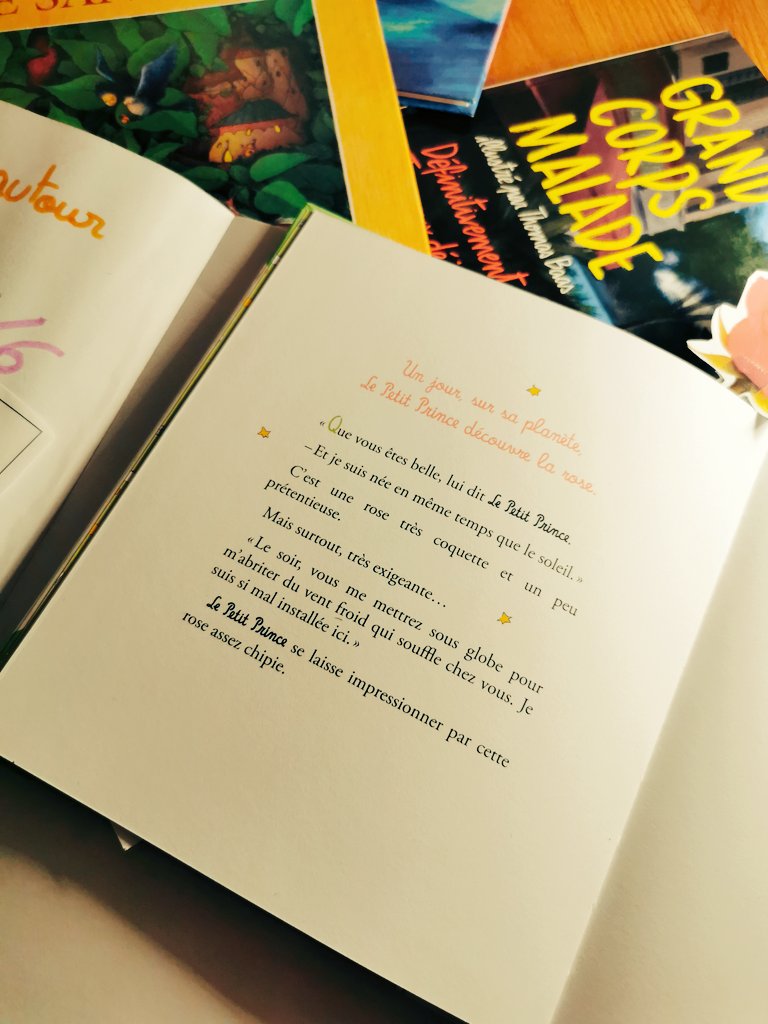 GRAND
CORPS
MALADE
illustré par Thomas Baas
Définitivement
autour
16
Un jour, sur sa planète,
Le Petit Prince découvre la rose.
« Que vous êtes belle, lui dit Le Petit Prince.
– Et je suis née en même temps que le soleil. »
C'est une rose très coquette et un peu
prétentieuse.
Mais surtout, très exigeante…
« Le soir, vous me mettrez sous globe pour
m'abriter du vent froid qui souffle chez vous. Je
suis si mal installée ici. »
Le Petit Prince se laisse impressionner par cette
rose assez chipie.